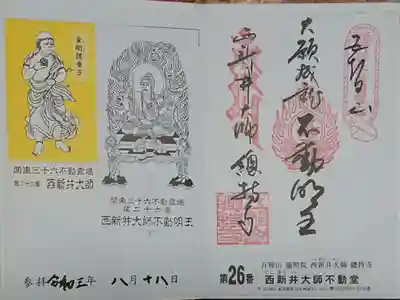 金剛護童子
関東三十六不動霊場
第二十六番 西新井大師
関東三十六不動霊場
第二十六番
西新井大師不動明王
参拝 令和三年 八月十八日
五智山
大願成就 不動明王
西新井大師 總持寺
第26番
五智山 遍照院 西新井大師 總持寺
西新井大師不動堂